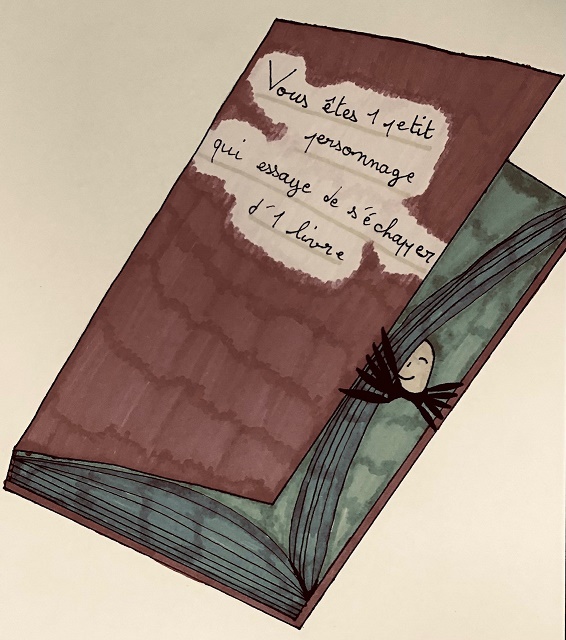 Vous êtes 1 petit
personnage
qui essaye de s'échapper
d'1 livre